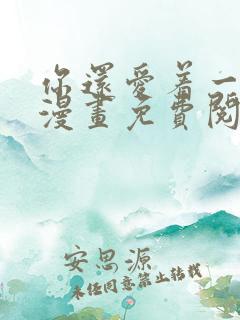 你還愛着一
漫畫免費閱
安思源
未经同意禁止转载